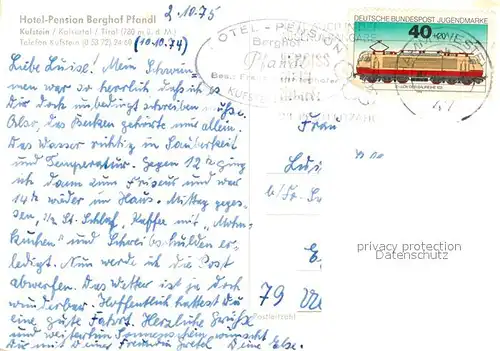 Hotel-Pension Berghof Pfandl
Kufstein / Kaisertal / Tirol (780 m ü. d. M.)
Telefon Kufstein (0 53 72) 24 60
2.10.75
(10.10.74)
OTEL - PENSION
Berghof
Pfandl
KUFSTEIN
DEUTSCHE BUNDESPOST JUGENDMARKE
40
Liebe Luise! Mein Schwim-
men war so herrlich daß ich es
Dir doch unbedingt schreiben muß.
Also, das Becken gehörte mir allein.
Das Wasser richtig in Sauberkeit
und Temperatur. Gegen 12 h ging
ich dann zum Friseur und war
14 h wieder im Haus. Mittag geges-
sen, St. Schlaf, Kaffee mit "Mohn-
kuchen" und Schreibschulden er-
ledigt. Nun werde ich die Post
abwerfen. Das Wetter ist ja doch
wunderbar. Hoffentlich hattest Du
eine gute Fahrt. Herzliche Grüße
und weiterhin Sonnenschein wünscht
Dir mit Deiner Freundin Gretel Deine Else.
Frau
79
Postleitzahl
privacy protection
Datenschutz